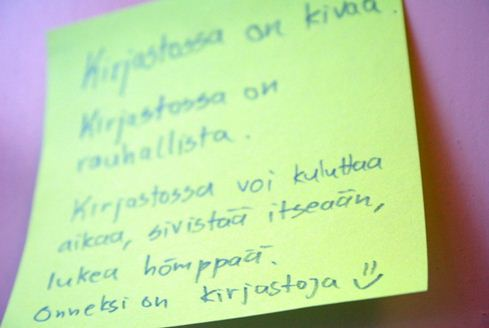 Kirjastossa on kivaa.
Kirjastossa on
rauhallista.
Kirjastossa voi kuluttaa
aikaa, sivistää itseään,
lukea hömppää.
Onneksi on kirjastoja